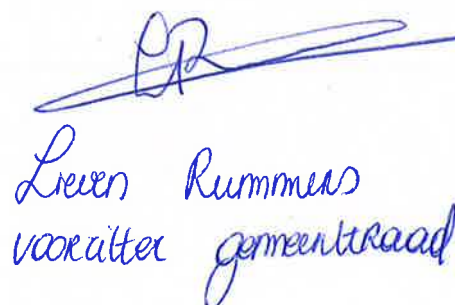 Lieven Rummens
voorzitter gemeenteraad